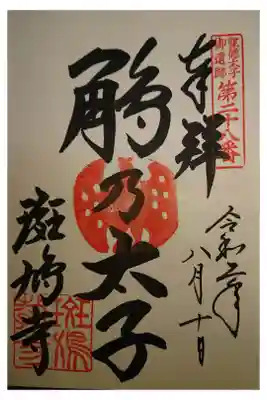 聖徳太子
御遺跡
第二十八番
奉拝
鵤乃太子
令和二年
八月十日
斑鳩寺